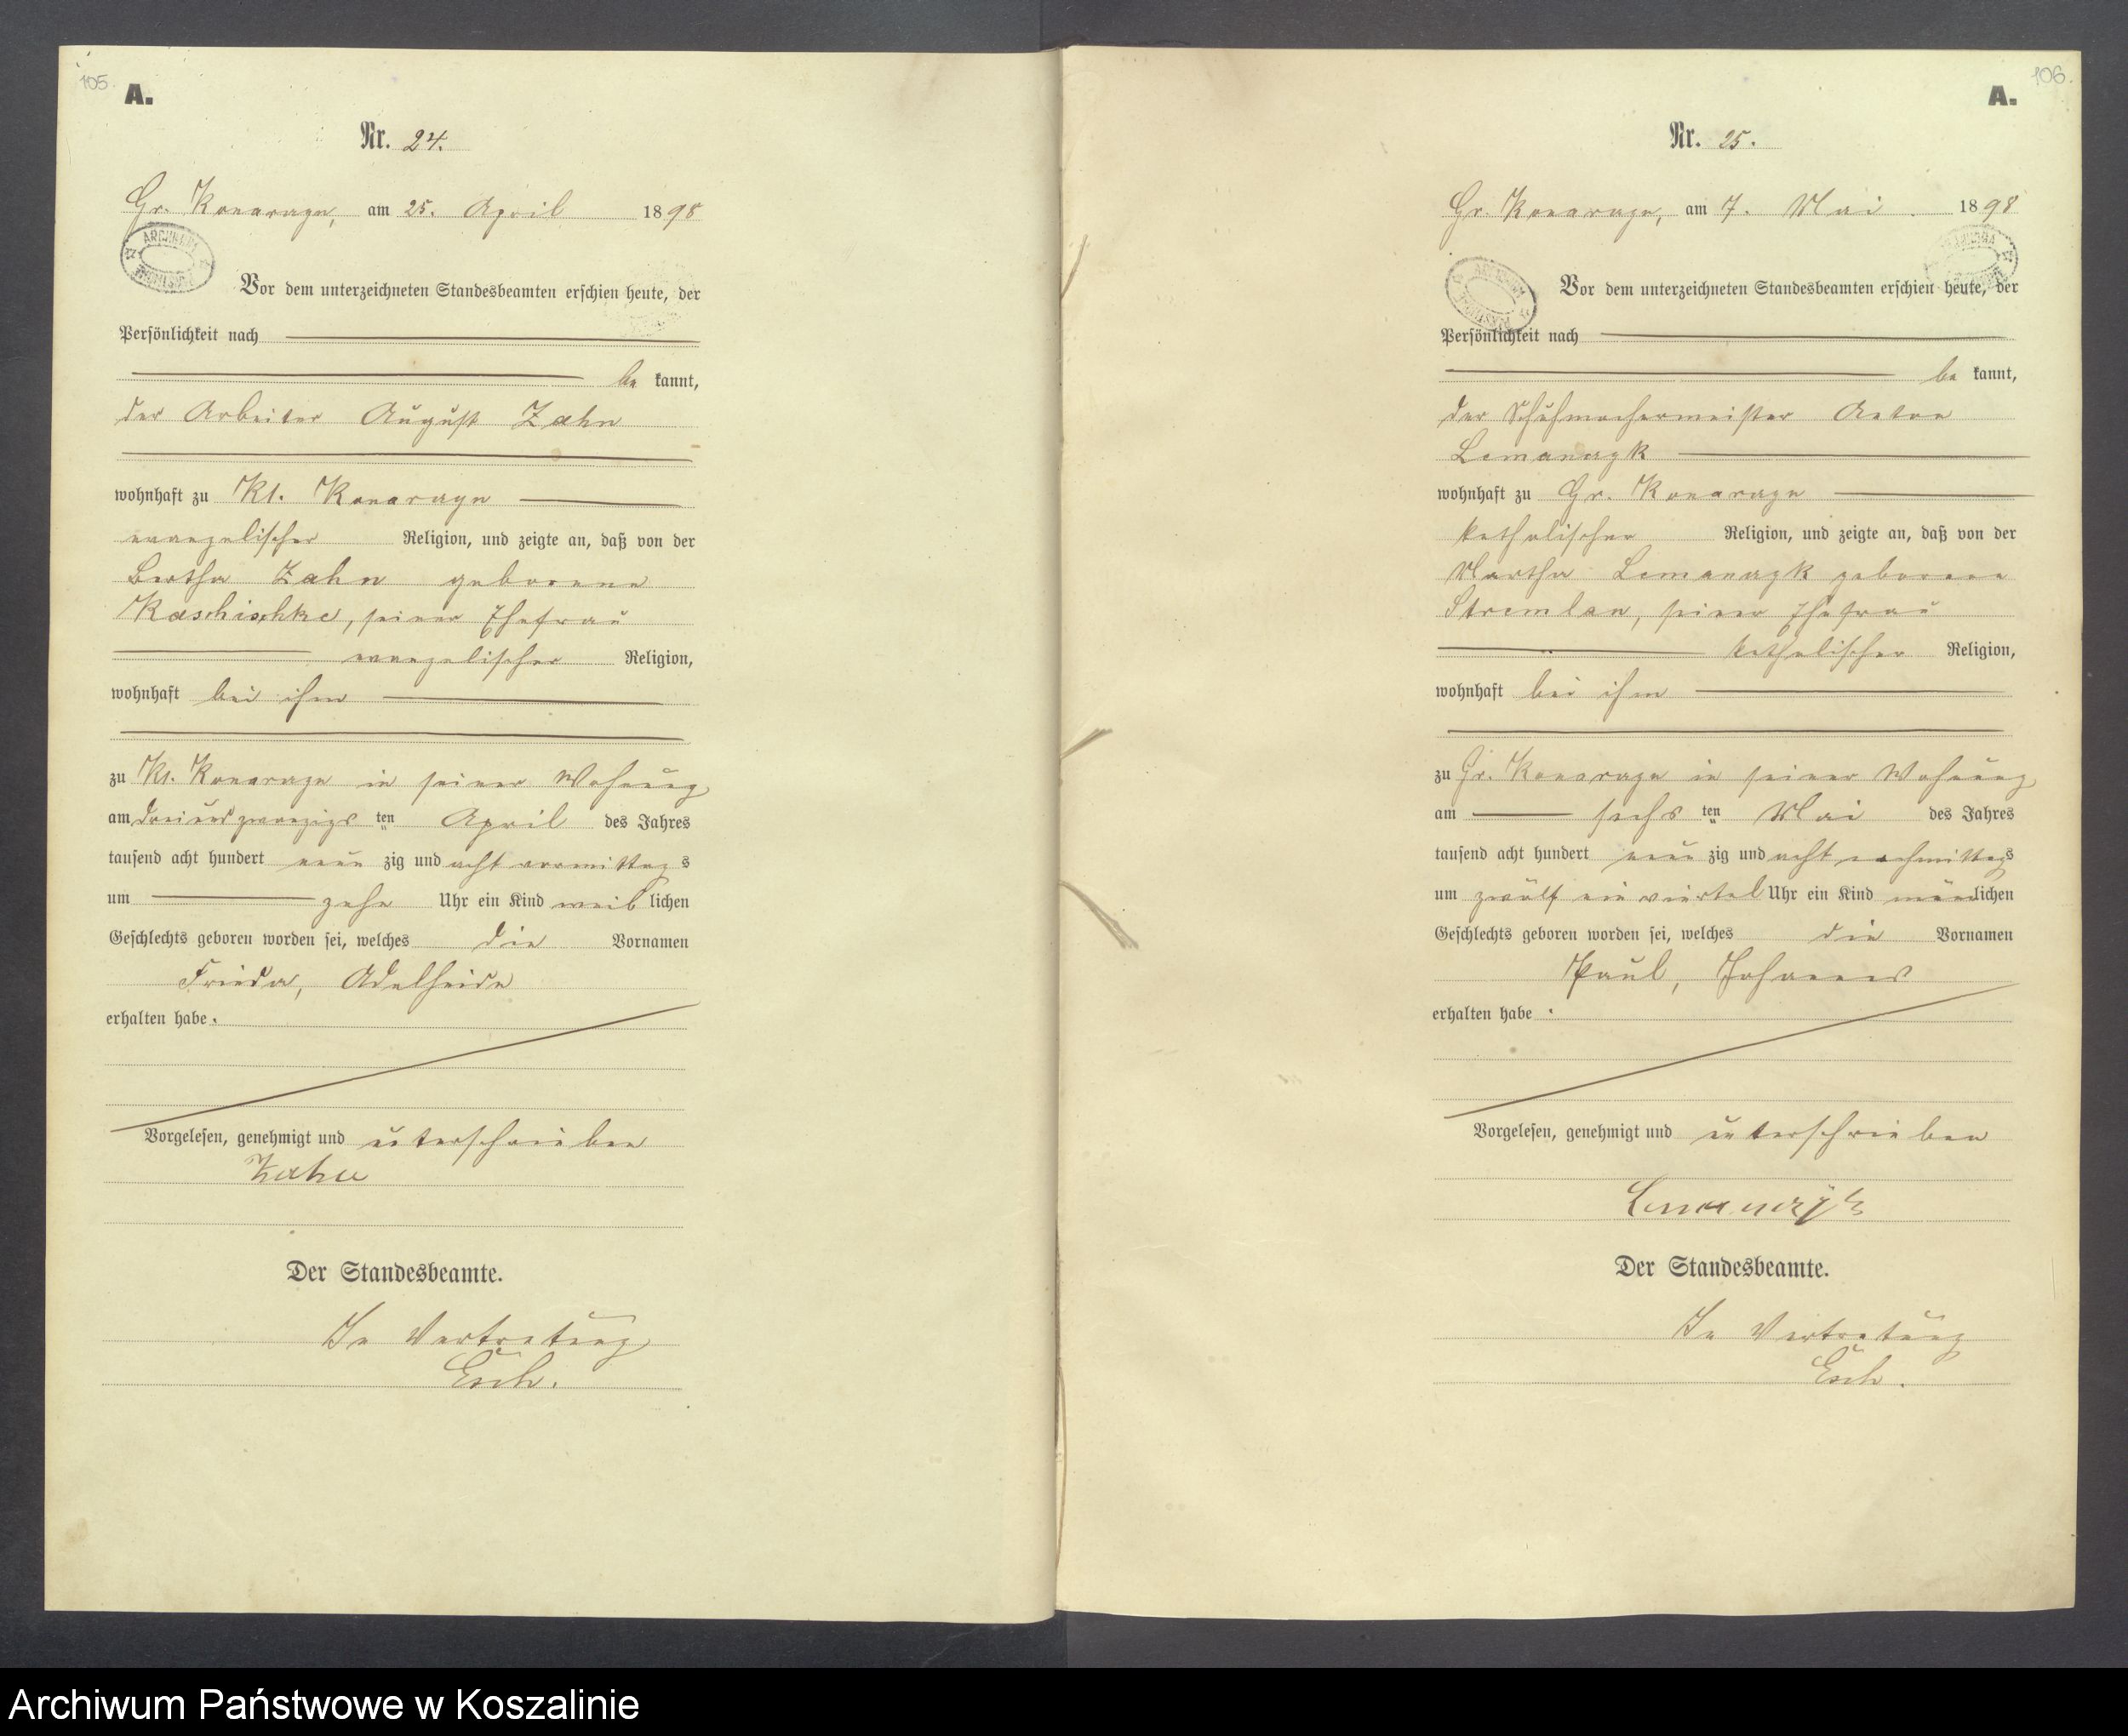 105.
A.
Nr. 24.
Gr. Konarzyn, am 25. April 1898
Vor dem unterzeichneten Standesbeamten erschien heute, der
Persönlichkeit nach
be kannt,
der Arbeiter August Zahn
wohnhaft zu Kl. Konarzyn
evangelischer Religion, und zeigte an, daß von der
Bertha Zahn geborene
Kaschischke, seiner Ehefrau
evangelischer Religion,
wohnhaft bei ihm
zu Kl. Konarzyn in seiner Wohnung
am dreiundzwanzigs ten April des Jahres
tausend acht hundert neun zig und acht vormittag s
um zehn Uhr ein Kind weib lichen
Geschlechts geboren worden sei, welches die Vornamen
Frieda, Adelheide
erhalten habe.
Vorgelesen, genehmigt und unterschrieben
Zahn
Der Standesbeamte.
In Vertretung
Esch.
106.
A.
Nr. 25.
Gr. Konarzyn, am 7. Mai 1898
Vor dem unterzeichneten Standesbeamten erschien heute, der
Persönlichkeit nach
be kannt,
der Schuhmachermeister Anton
Lemanczyk
wohnhaft zu Gr. Konarzyn
katholischer Religion, und zeigte an, daß von der
Martha Lemanczyk geborene
Stremlau, seiner Ehefrau
katholischer Religion,
wohnhaft bei ihm
zu Gr. Konarzyn in seiner Wohnung
am sechs ten Mai des Jahres
tausend acht hundert neun zig und acht nachmittags
um zwölf ein viertel Uhr ein Kind männlichen
Geschlechts geboren worden sei, welches die Vornamen
Paul, Johannes
erhalten habe.
Vorgelesen, genehmigt und unterschrieben
Lemanczyk
Der Standesbeamte.
In Vertretung
Esch.
Archiwum Państwowe w Koszalinie